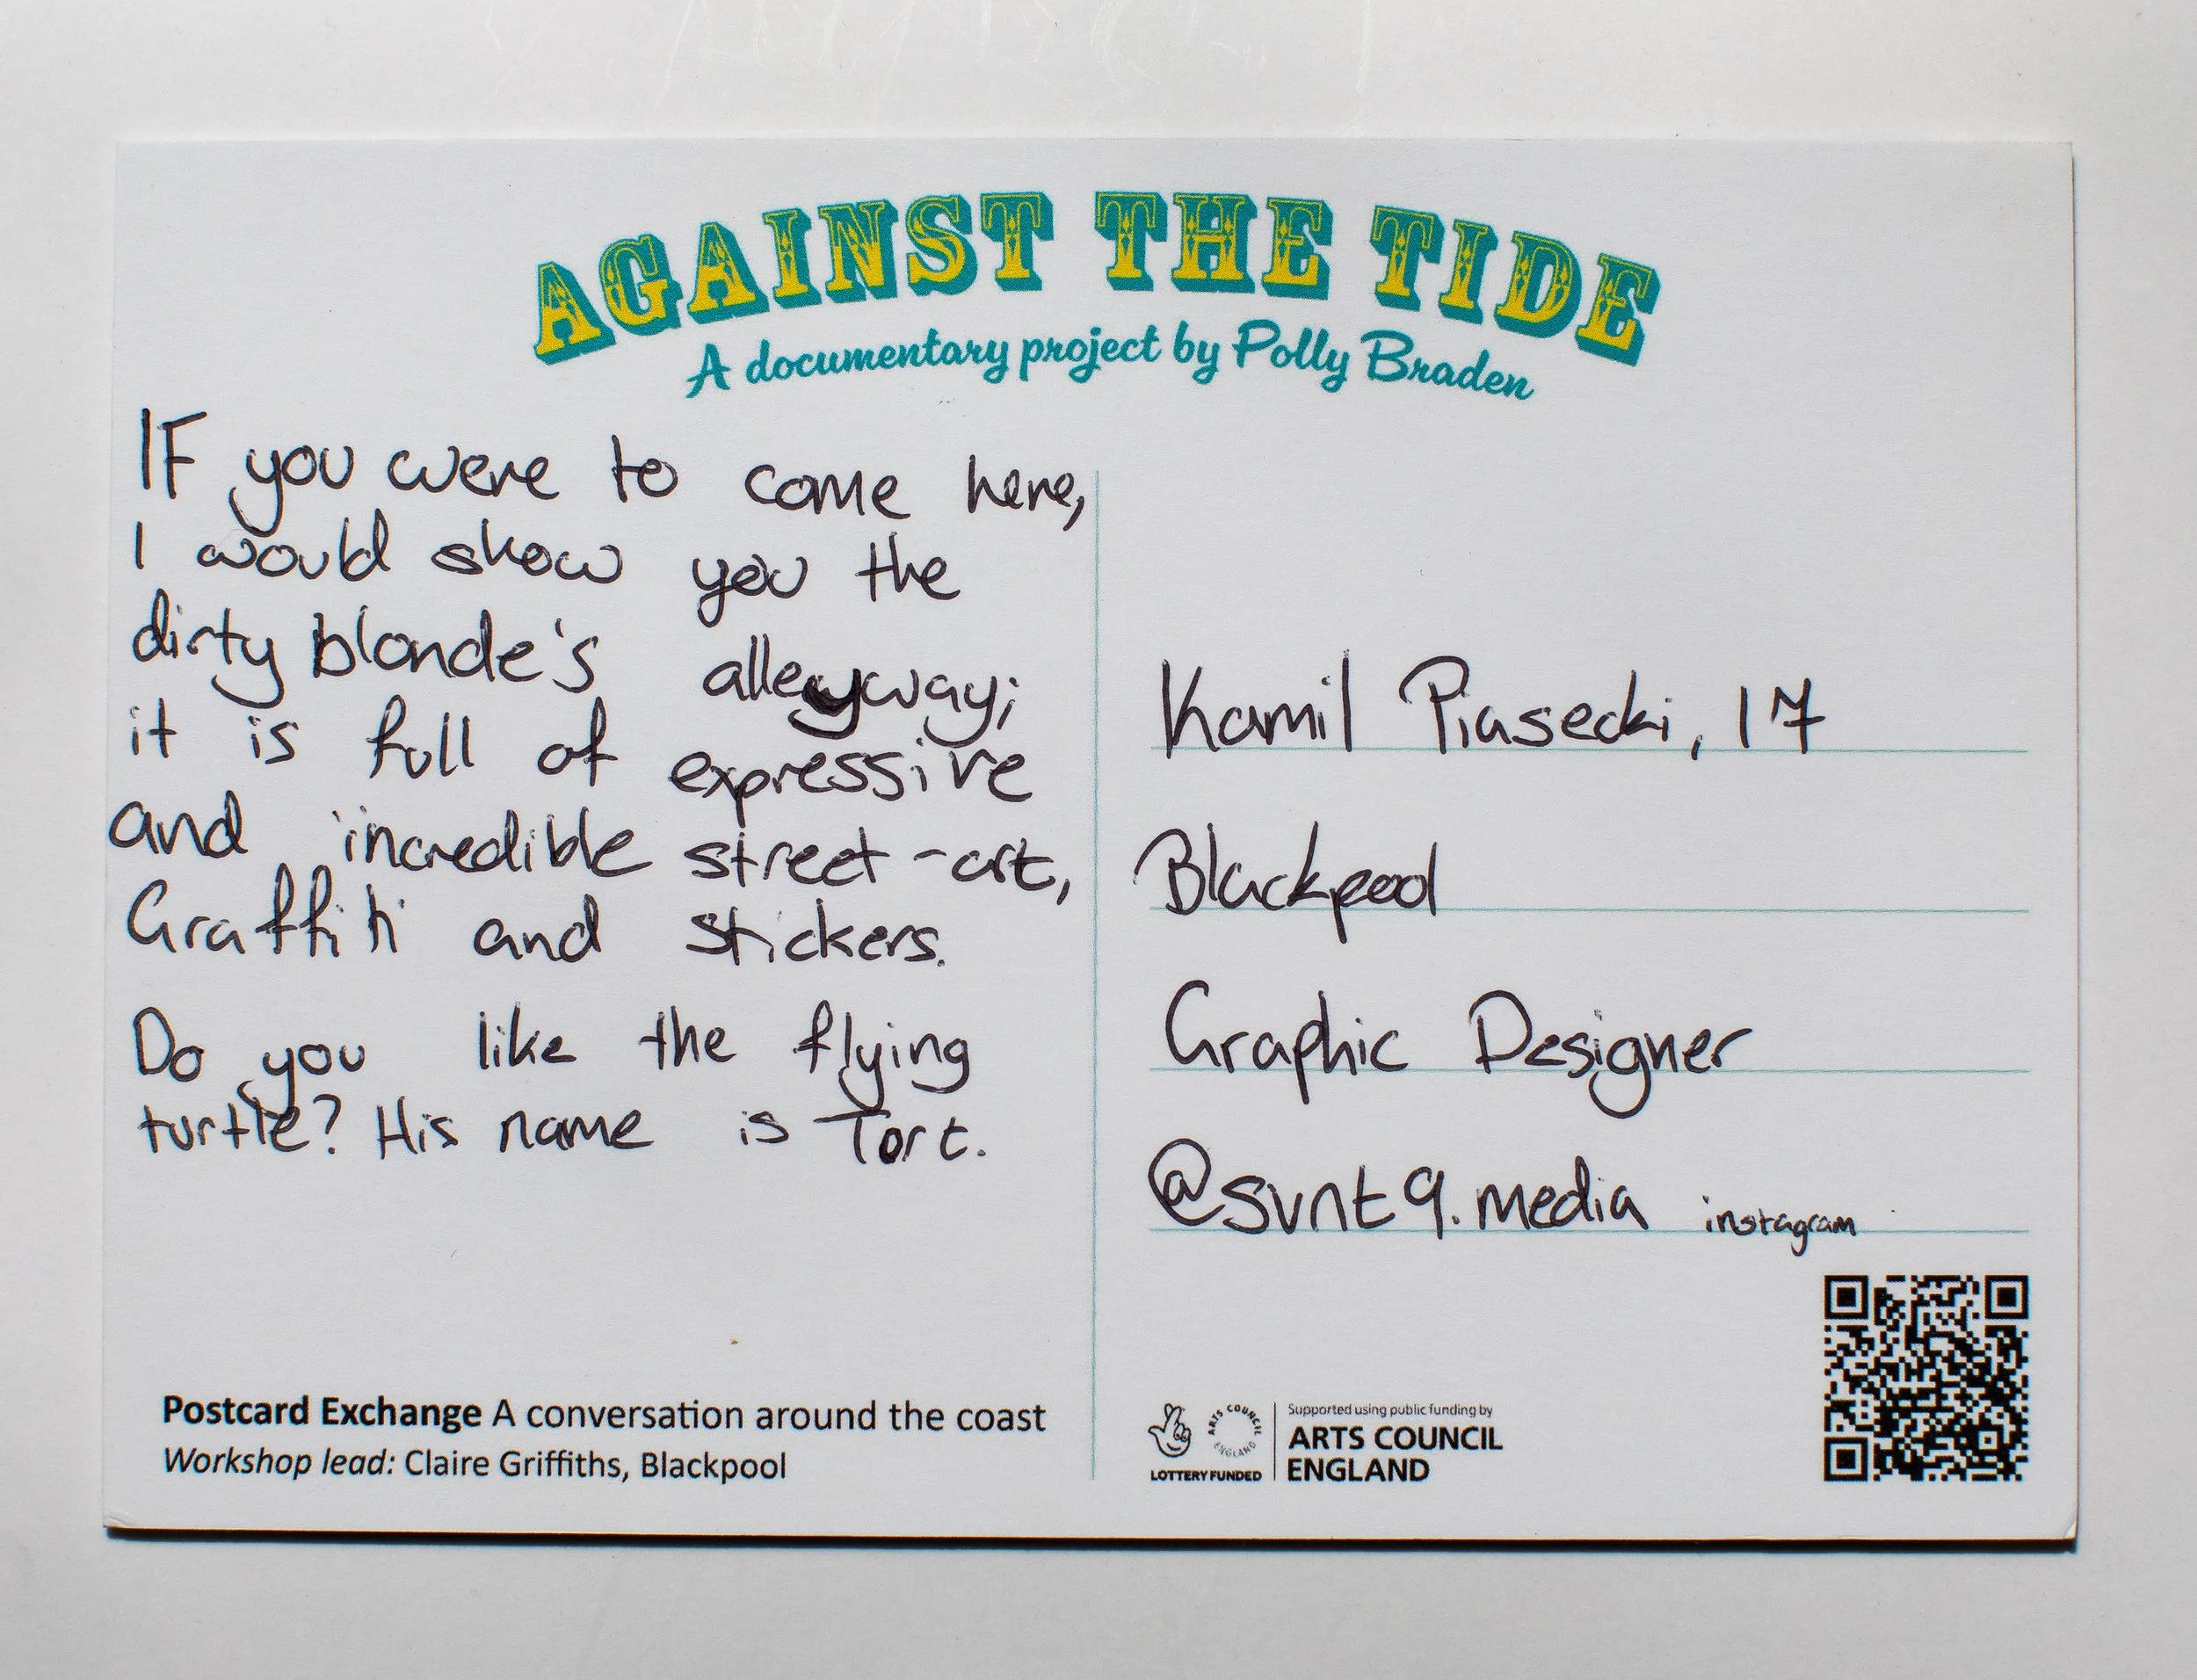 AGAINST THE TIDE
A documentary project by Polly Braden
IF you were to come here,
I would show you the
dirty blonde's alleyway;
it is full of expressive
and incredible street-art,
Graffiti and stickers.
Do you like the flying
turtle? His name is Tort.
Kamil Piasecki, 17
Blackpool
Graphic Designer
@svnt9.media instagram
Postcard Exchange A conversation around the coast
Workshop lead: Claire Griffiths, Blackpool
LOTTERY FUNDED
ARTS COUNCIL ENGLAND
Supported using public funding by
ARTS COUNCIL
ENGLAND